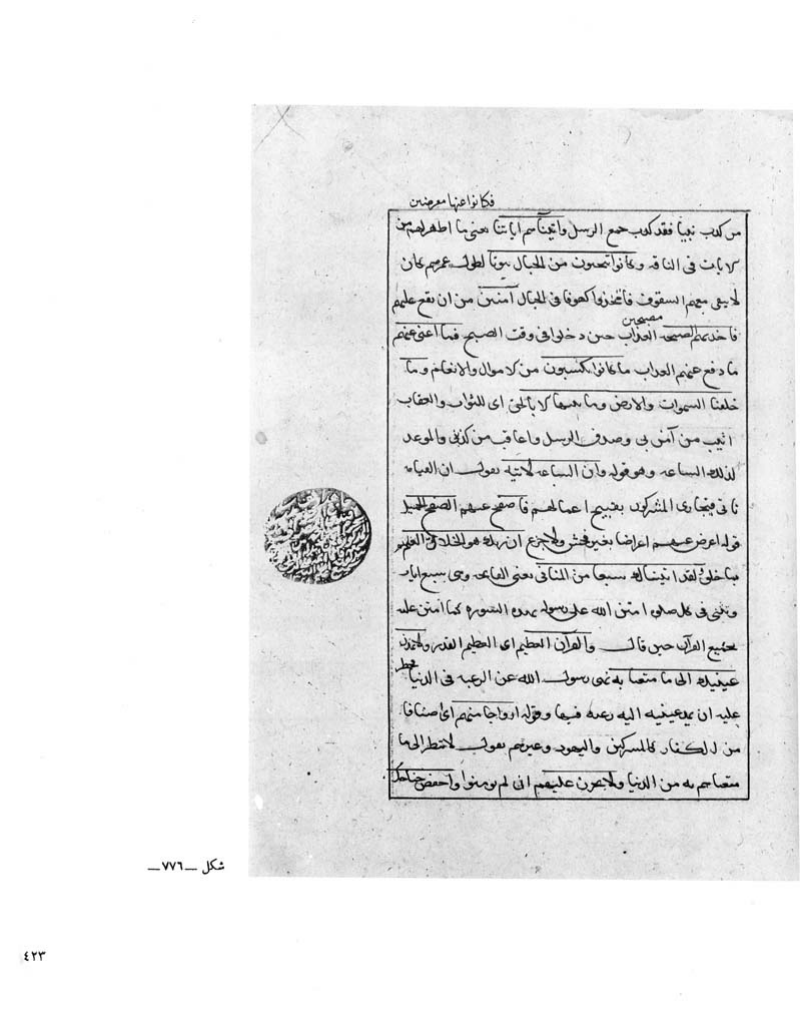 فكانوا عنها معرضين
من كذب نبيا فقد كذب جمع الرسل واتيناهم اياتنا يعنى ما اظهر لهم من
الايات فى الناقة وكانوا ينحتون من الجبال بيوتا لطول عمرهم كان
لا يبقى معهم السقوف فاتخذوا كهوفا فى الجبال امنين من ان يقع عليهم
مصبحين
فاخذتهم الصيحة العذاب حين دخلوا فى وقت الصبح فما اغنى عنهم
ما دفع عنهم العذاب ما كانوا يكسبون من الاموال والانعام وما
خلقنا السموات والارض وما بينهما الا بالحق اى للثواب والعقاب
اثيب من آمن بى وصدق الرسل واعاقب من كذبنى والموعد
لذلك الساعة وهو قوله وان الساعة لاتية يقول ان القيامة
تاتى فيجازى المشركون بقبيح اعمالهم فاصفح عنهم الصفح الجميل
قوله اعرض عنهم اعراضا بغير فحش ولا جزع ان ربك هو الخلاق العليم
بما خلق ولقد اتيناك سبعا من المثانى يعنى الفاتحة وهى سبع ايات
وتثنى فى كل صلوة امتن الله على رسوله بهذه السورة كما امتن عليه
بجميع القرآن حين قال والقرآن العظيم اى العظيم القدر ولا تمدن
عينيك الى ما متعنا به نهى رسول الله عن الرغبة فى الدنيا فحظر
عليه ان يمد عينيه اليه رغبة فيها وقوله ازواجا منهم اى اصنافا
من الكفار كالمشركين واليهود وغيرهم يقول لا تنظر الى ما
متعناهم به من الدنيا ولا تحزن عليهم ان لم يومنوا واخفض جناحك
شكل ــ٧٧٦ــ
٤٢٣